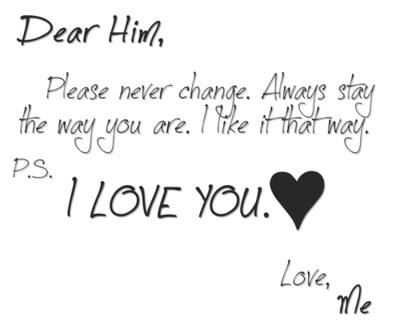 Dear Him,
Please never change. Always stay
the way you are. I like it that way.
P.S.
I LOVE YOU.
Love,
Me